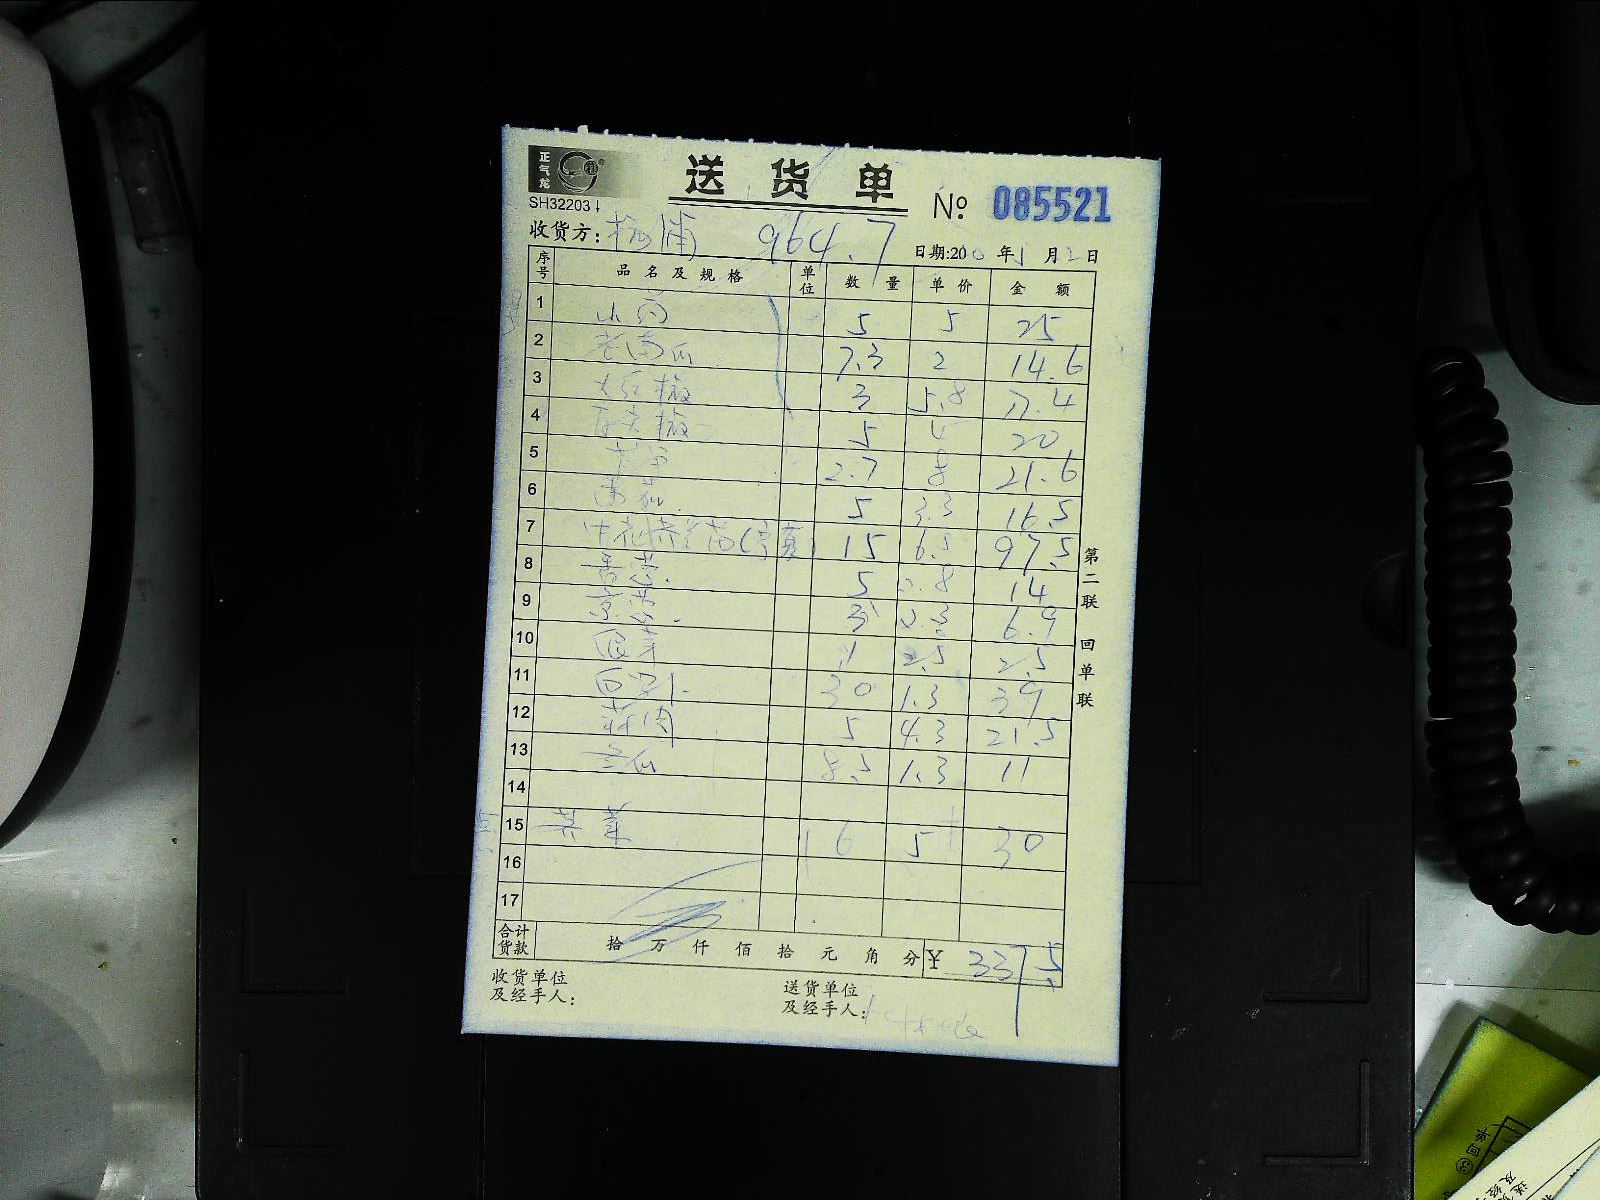 正气龙
送货单
№ 085521
SH32203
收货方: 杨浦 964.7
日期:20 年 月 日
序号 品名及规格 单位 数量 单价 金额
1 山药 5 5 25
2 老南瓜 7.3 2 14.6
3 大红椒 3 5.8 17.4
4 尖椒 5 4 20
5 2.7 8 21.6
6 5 3.3 16.5
7 15 6.5 97.5
8 香葱 5 2.8 14
9 京葱 3 2.3 6.9
10 银芽 1 2.5 2.5
11 白萝卜 30 1.3 39
12 5 4.3 21.5
13 冬瓜 8.5 1.3 11
14
15 6 5 30
16
17
合计货款 拾 万 仟 佰 拾 元 角 分 ¥ 337.5
收货单位及经手人:
送货单位及经手人:
第二联 回单联